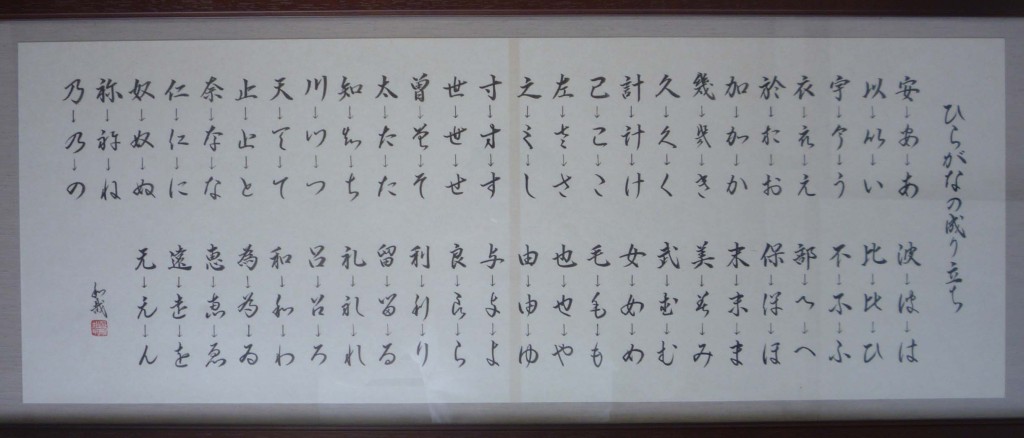 ひらがなの成り立ち
安→あ→あ
以→以→い
宇→う→う
衣→衣→え
於→お→お
加→か→か
幾→幾→き
久→久→く
計→計→け
己→こ→こ
左→さ→さ
之→之→し
寸→寸→す
世→世→せ
曽→曽→そ
太→た→た
知→知→ち
川→つ→つ
天→て→て
止→止→と
奈→な→な
仁→仁→に
奴→奴→ぬ
祢→祢→ね
乃→乃→の
波→は→は
比→比→ひ
不→不→ふ
部→へ→へ
保→ほ→ほ
末→末→ま
美→美→み
武→武→む
女→め→め
毛→も→も
也→也→や
由→由→ゆ
与→与→よ
良→良→ら
利→利→り
留→留→る
礼→礼→れ
呂→呂→ろ
和→和→わ
為→為→ゐ
恵→恵→ゑ
遠→遠→を
无→无→ん